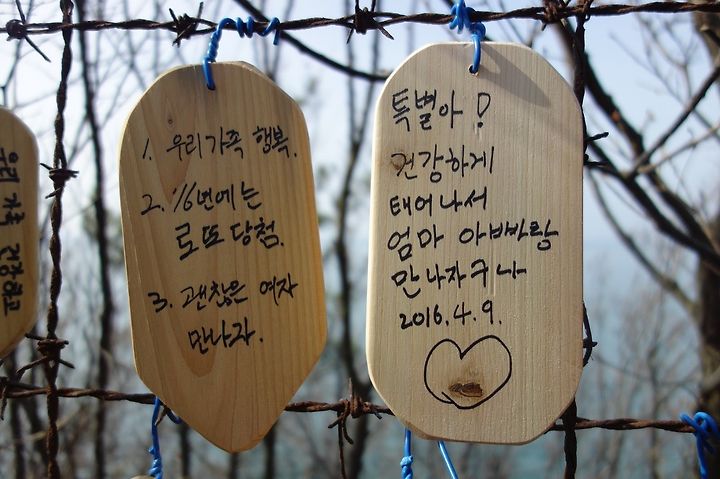 우리 가족 건강하고
1. 우리가족 행복.
2. 16년에는
로또 당첨.
3. 괜찮은 여자
만나자.
특별아!
건강하게
태어나서
엄마 아빠랑
만나자구나
2016.4.9.